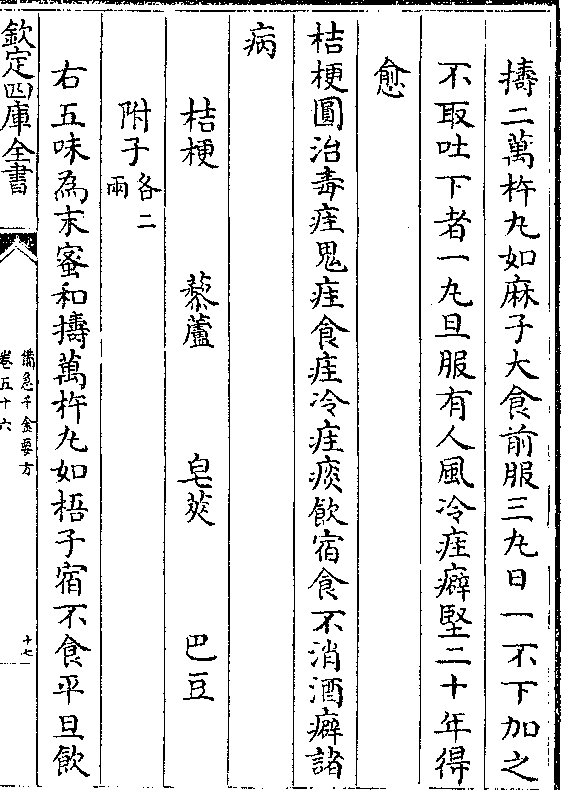 擣二萬杵丸如麻子大食前服三丸日一不下加之
不取吐下者一丸旦服有人風冷疰癖堅二十年得
愈
桔梗圓治毒疰鬼疰食疰冷疰痰飲宿食不消酒癖諸
病
桔梗 藜蘆 皂莢 巴豆
附子各二兩
右五味為末蜜和擣萬杵丸如梧子宿不食平旦飲
欽定四庫全書
備急千金要方
卷五十六
十七